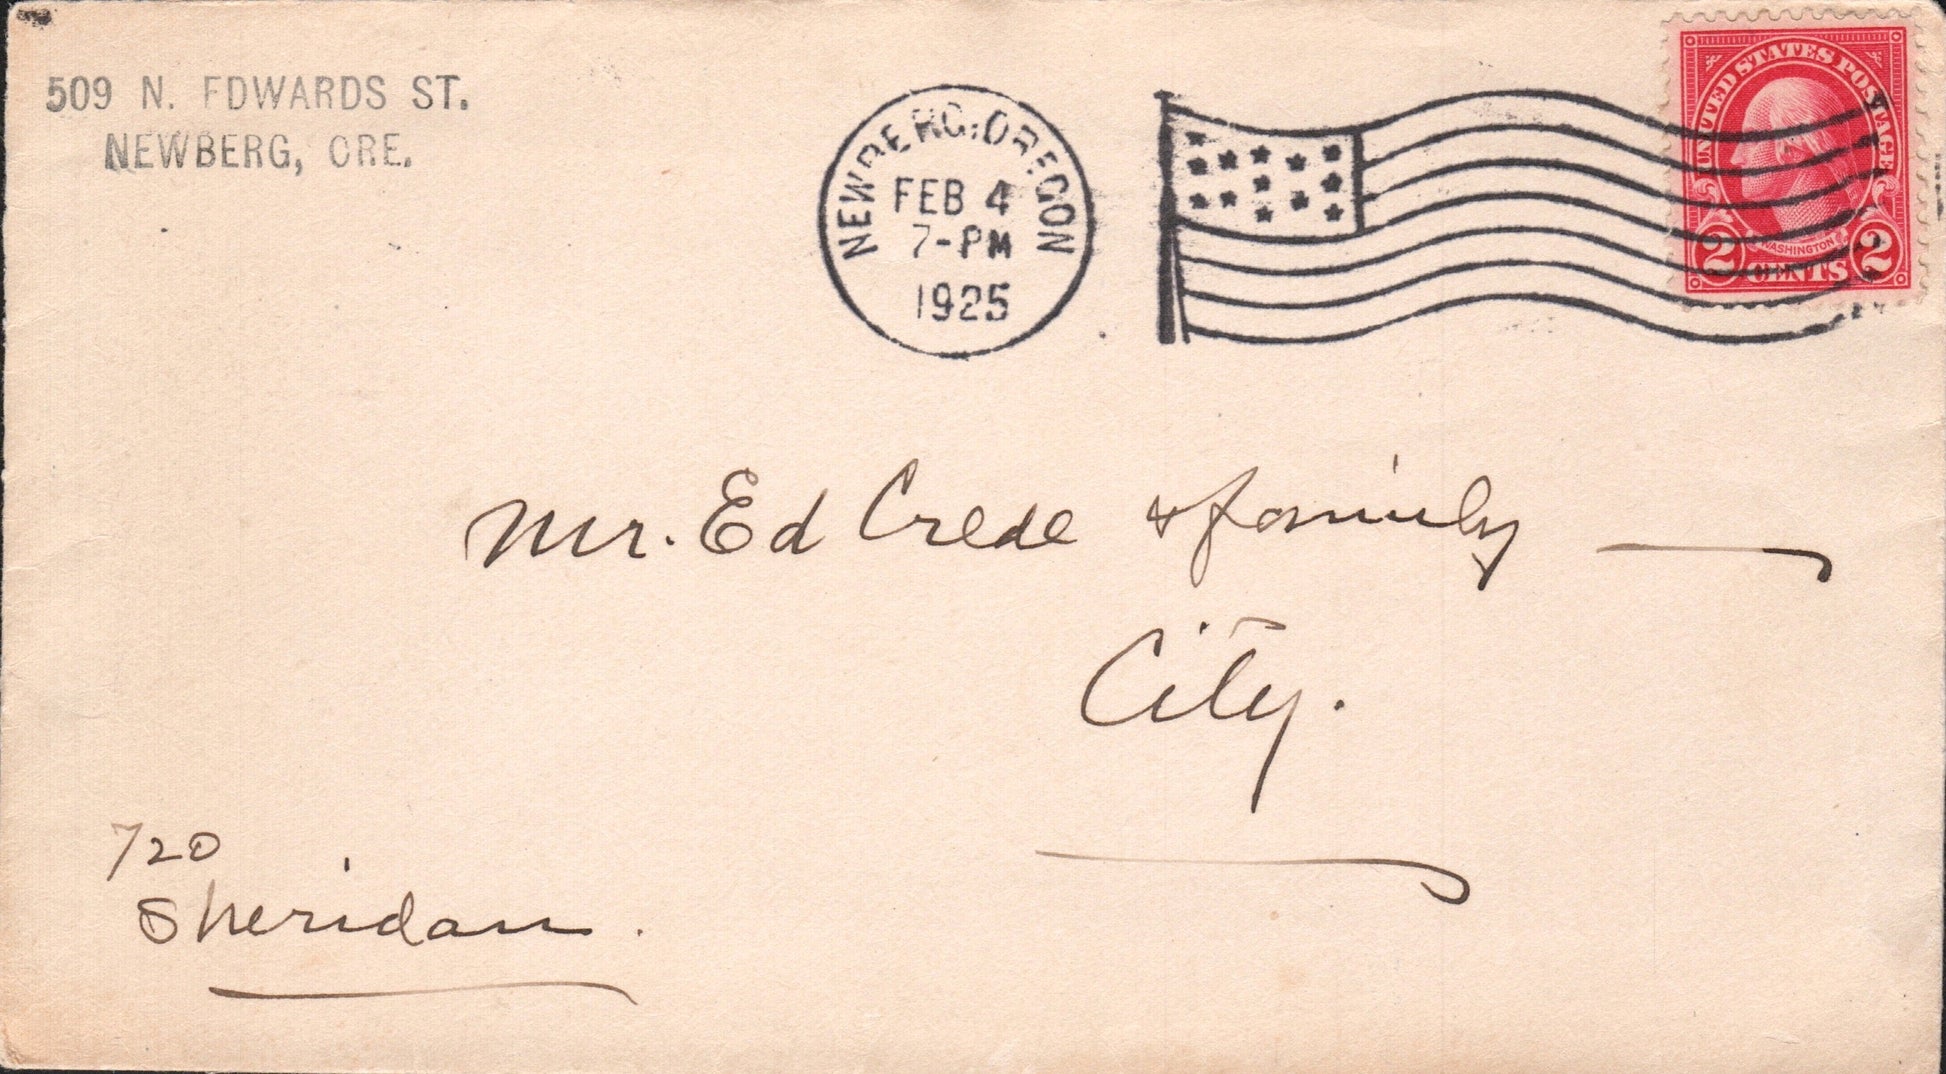 509 N. EDWARDS ST.
NEWBERG, ORE.
NEWBERG, OREGON
FEB 4
7-PM
1925
UNITED STATES POSTAGE
WASHINGTON
2 CENTS 2
Mr. Ed Crede & family
City.
720
Sheridan.